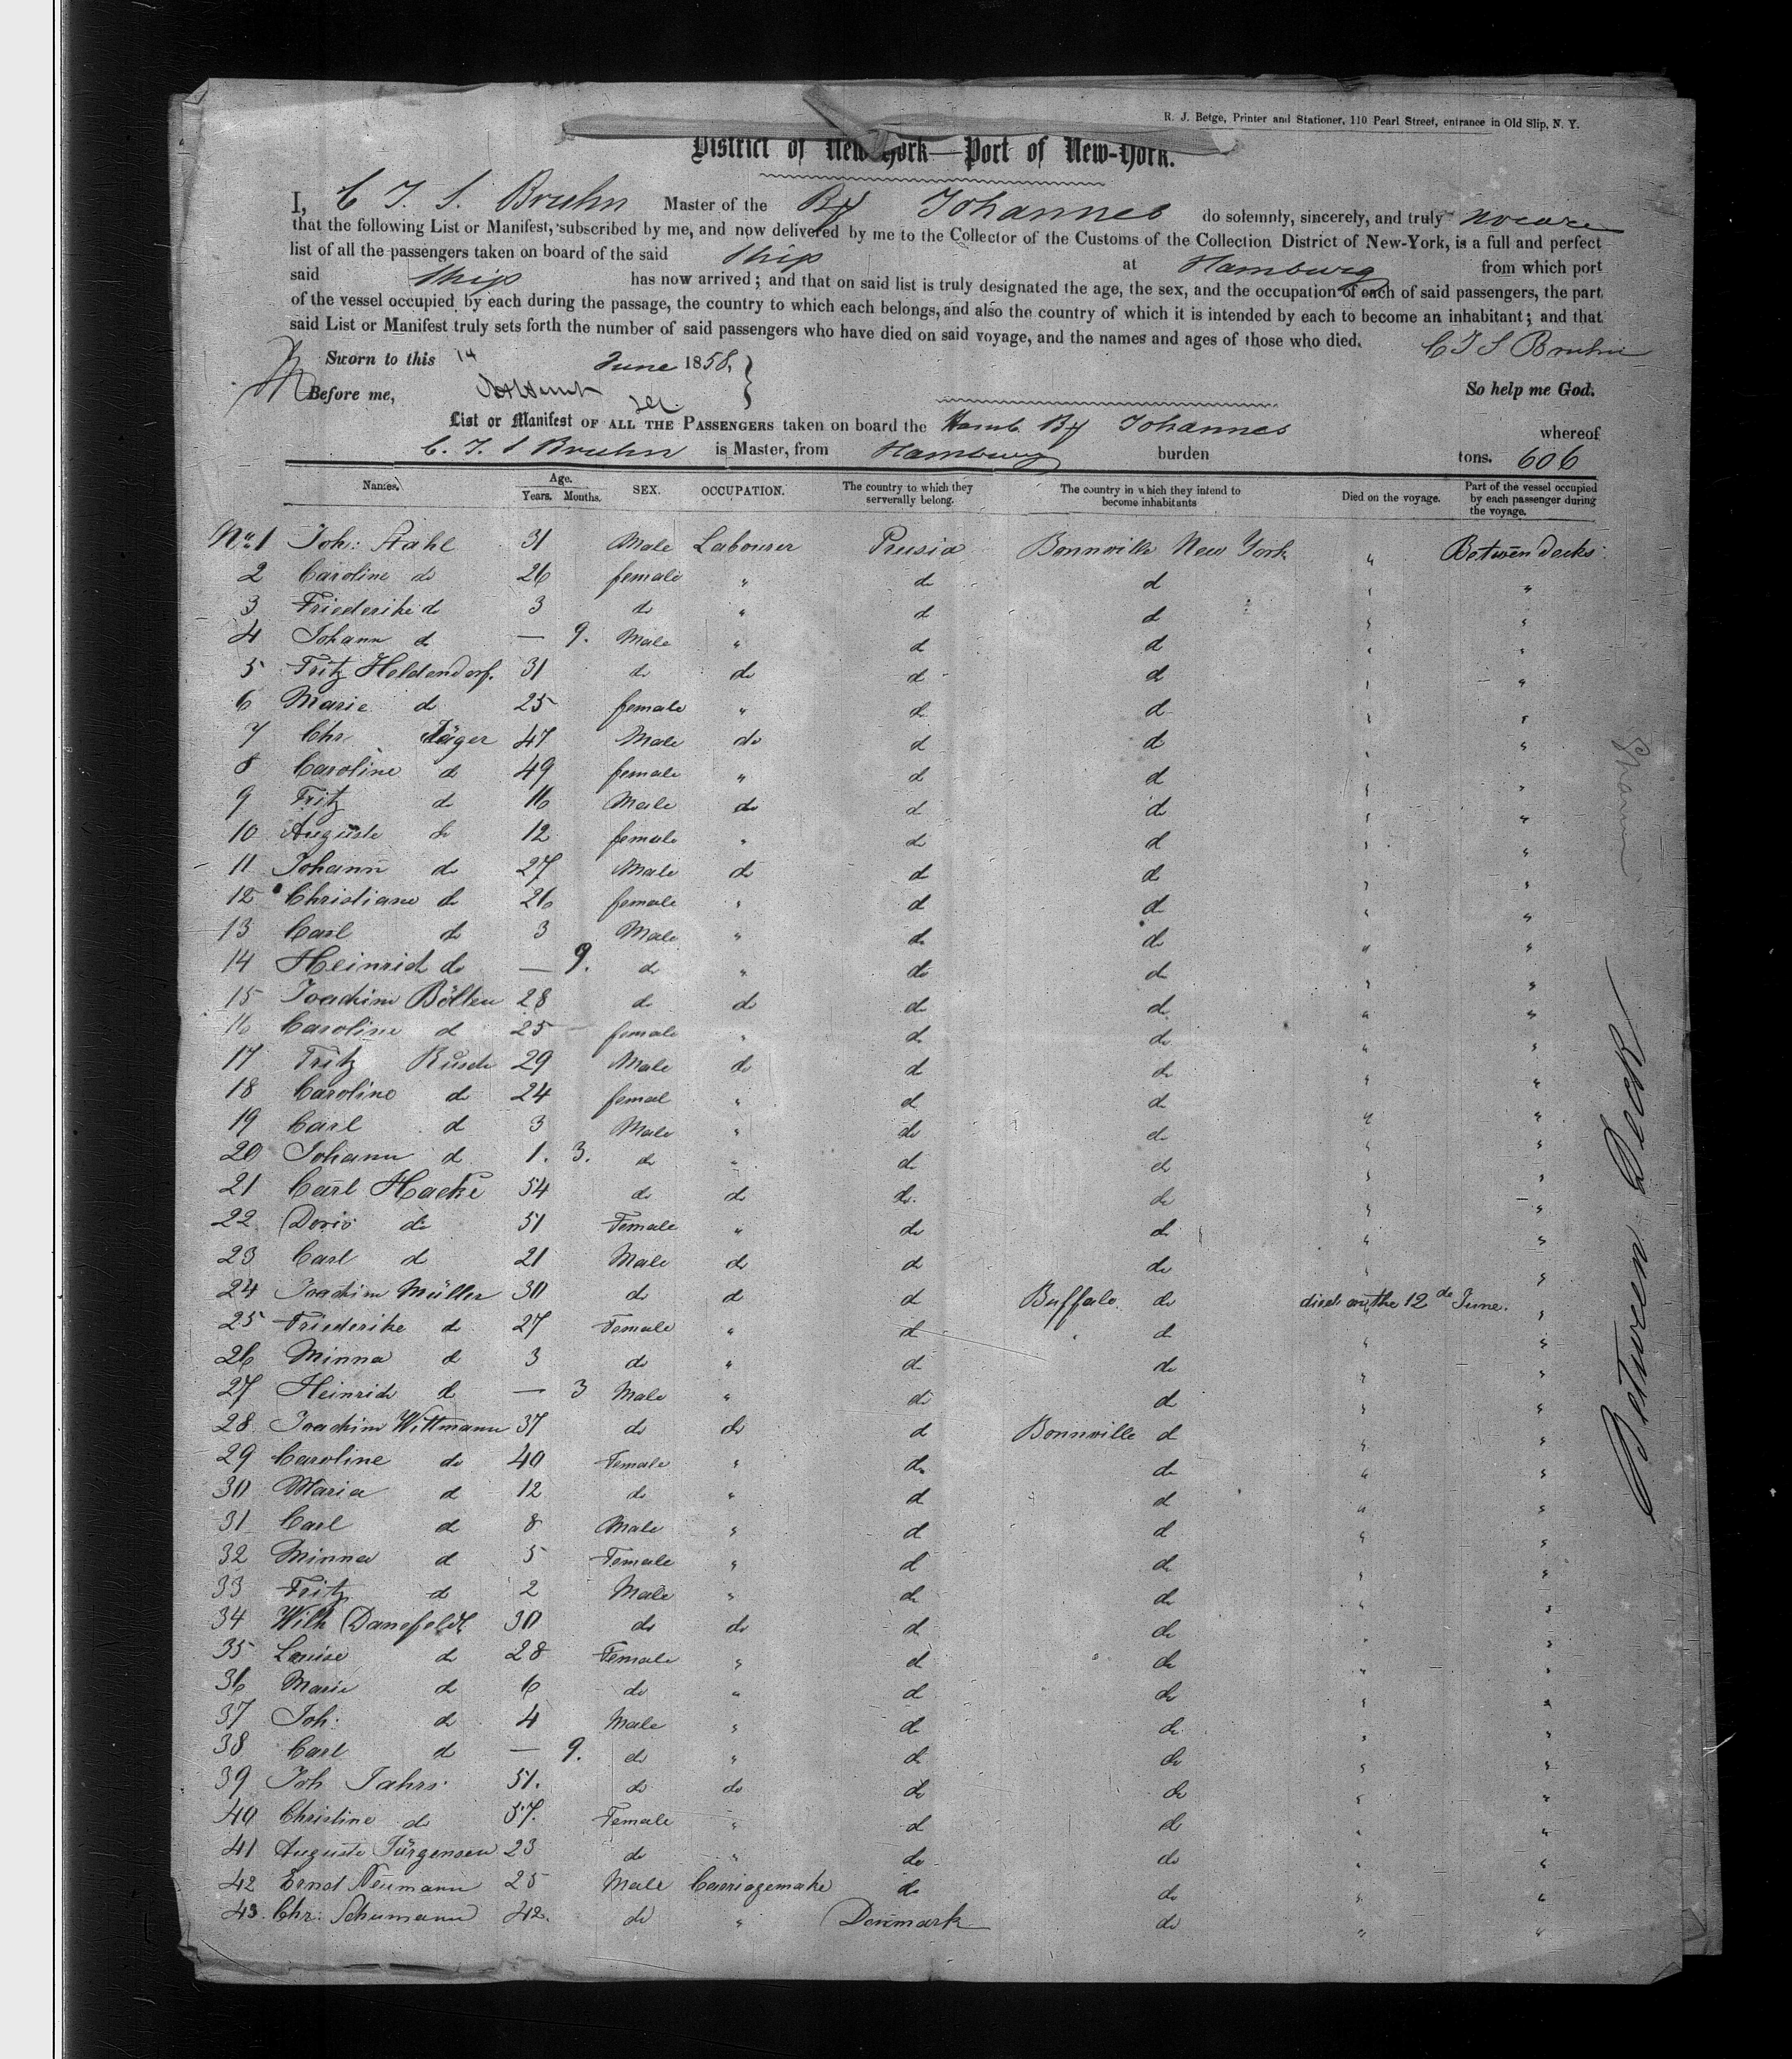 R. J. Betge, Printer and Stationer, 110 Pearl Street, entrance in Old Slip, N. Y.
District of New York—Port of New-York.
I, C T. S. Bruhn Master of the Johannes do solemnly, sincerely, and truly
that the following List or Manifest, subscribed by me, and now delivered by me to the Collector of the Customs of the Collection District of New-York, is a full and perfect
list of all the passengers taken on board of the said Ship at Hamburg from which port
said Ship has now arrived; and that on said list is truly designated the age, the sex, and the occupation of each of said passengers, the part
of the vessel occupied by each during the passage, the country to which each belongs, and also the country of which it is intended by each to become an inhabitant; and that
said List or Manifest truly sets forth the number of said passengers who have died on said voyage, and the names and ages of those who died.
C T S Bruhn
Sworn to this 14 June 1858,
Before me, So help me God.
List or Manifest OF ALL THE PASSENGERS taken on board the Hamb. Johannes whereof
C. T. S Bruhn is Master, from Hamburg burden tons. 606
Names. Age. Years. Months. SEX. OCCUPATION. The country to which they serverally belong. The country in which they intend to become inhabitants Died on the voyage. Part of the vessel occupied by each passenger during the voyage.
No. 1 Joh: Stahl 31 Male Labourer Prusia Bonnville New York " Between decks
2 Caroline do 26 female " do d " "
3 Friederike d 3 do " d d " "
4 Johann d — 9. Male " d d " "
5 Fritz Heldendorf. 31 do do d d " "
6 Marie d 25 female " d d " "
7 Chr. Jäger 47 Male do d d " "
8 Caroline d 49 female " d d " "
9 Fritz d 16 Male do d do " "
10 Auguste do 12 female " do d " "
11 Johann do 27 Male do d d " "
12 Christiane d 26 female " d d " "
13 Carl do 3 Male " d do " "
14 Heinrich do — 9. d " do d " "
15 Joachim Bölten 28 do do d do " "
16 Caroline d 25 female " d do " "
17 Fritz Rusch 29 Male do d do " "
18 Caroline d 24 femal " d do " "
19 Carl d 3 Male " do d " "
20 Johann d 1. 3. do " d do " "
21 Carl Hacke 54 do do d. do " "
22 Doris do 51 Female " do d " "
23 Carl d 21 Male do d do " "
24 Joachim Müller 30 do d d Buffalo do died on the 12 de June. "
25 Friederike d 27 Female " d " d " "
26 Minna d 3 do " d do " "
27 Heinrich d — 3 Male " do d " "
28 Joachim Wittmann 37 do do d Bonnville d " "
29 Caroline do 40 Female " do do " "
30 Maria d 12 do " d d " "
31 Carl d 8 Male " d d " "
32 Minna d 5 Female " d do " "
33 Fritz d 2 Male " do do " "
34 Wilh Danefeldt 30 do do d do " "
35 Louise do 28 Female " d do " "
36 Marie d 6 do " d do " "
37 Joh: d 4 Male " d do " "
38 Carl d — 9. do " d do " "
39 Joh Jahrs 51. do do do do " "
40 Christine d 57. Female " d d " "
41 Auguste Jürgensen 23 do " do do " "
42 Ernst Neumann 25 Male Carriagemake do do " "
43. Chr: Schumann 42. do " Denmark do " "
Between Deck